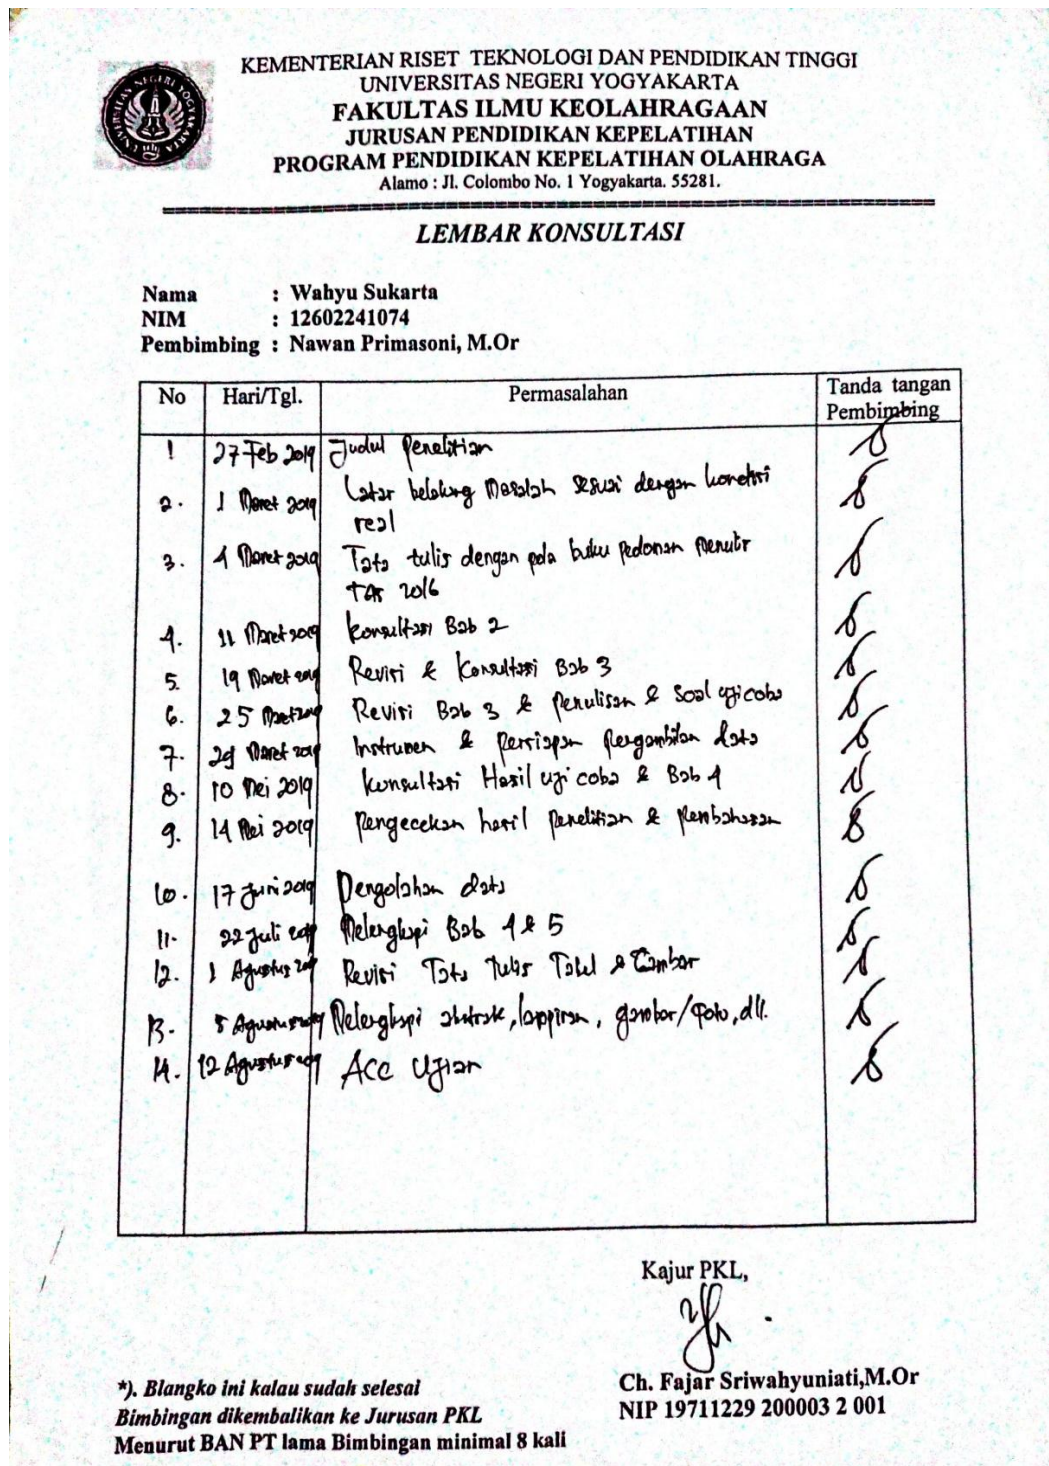 KEMENTERIAN RISET TEKNOLOGI DAN PENDIDIKAN TINGGI
UNIVERSITAS NEGERI YOGYAKARTA
FAKULTAS ILMU KEOLAHRAGAAN
JURUSAN PENDIDIKAN KEPELATIHAN
PROGRAM PENDIDIKAN KEPELATIHAN OLAHRAGA
Alamo : Jl. Colombo No. 1 Yogyakarta. 55281.
UNIVERSITAS NEGERI YOGYAKARTA
LEMBAR KONSULTASI
Nama : Wahyu Sukarta
NIM : 12602241074
Pembimbing : Nawan Primasoni, M.Or
No Hari/Tgl. Permasalahan Tanda tangan
Pembimbing
1 27 Feb 2019 Judul Penelitian
2. 1 Maret 2019 Latar belakang Masalah sesuai dengan kondisi
real
3. 4 Maret 2019 Tata tulis dengan pola buku pedoman
TAS 2016
4. 11 Maret 2019 Konsultasi Bab 2
5. 19 Maret 2019 Revisi & Konsultasi Bab 3
6. 25 Maret 2019 Revisi Bab 3 & Penulisan & Soal uji coba
7. 29 Maret 2019 Instrumen & Persiapan Pengambilan data
8. 10 Mei 2019 Konsultasi Hasil uji coba & Bab 4
9. 14 Mei 2019 Pengecekan hasil Penelitian & Pembahasan
10. 17 Juni 2019 Pengolahan data
11. 22 Juli 2019 Melengkapi Bab 4 & 5
12. 1 Agustus 2019 Revisi Tata Tulis Tabel & Gambar
13. Agustus 2019 Melengkapi abstrak, lampiran, gambar/foto, dll.
14. 12 Agustus 2019 Acc Ujian
Kajur PKL,
Ch. Fajar Sriwahyuniati,M.Or
NIP 19711229 200003 2 001
*). Blangko ini kalau sudah selesai
Bimbingan dikembalikan ke Jurusan PKL
Menurut BAN PT lama Bimbingan minimal 8 kali